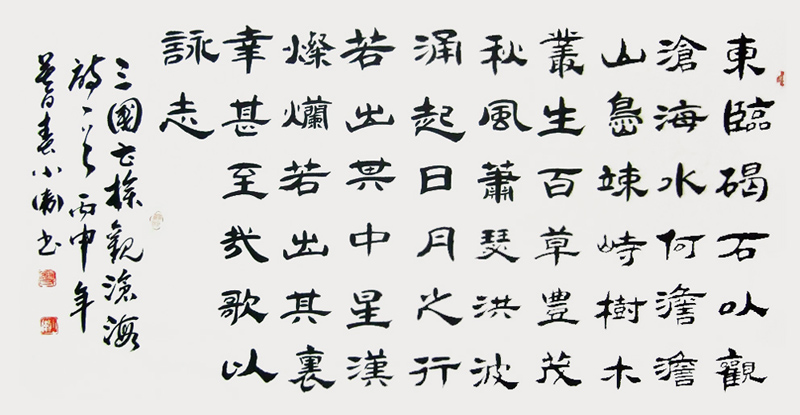 東臨碣石以觀
滄海水何澹澹
山島竦峙樹木
叢生百草豊茂
秋風蕭瑟洪波
涌起日月之行
若出其中星漢
燦爛若出其裏
幸甚至哉歌以
詠志
三國曹操觀滄海
詩一首丙申年
暮春小书